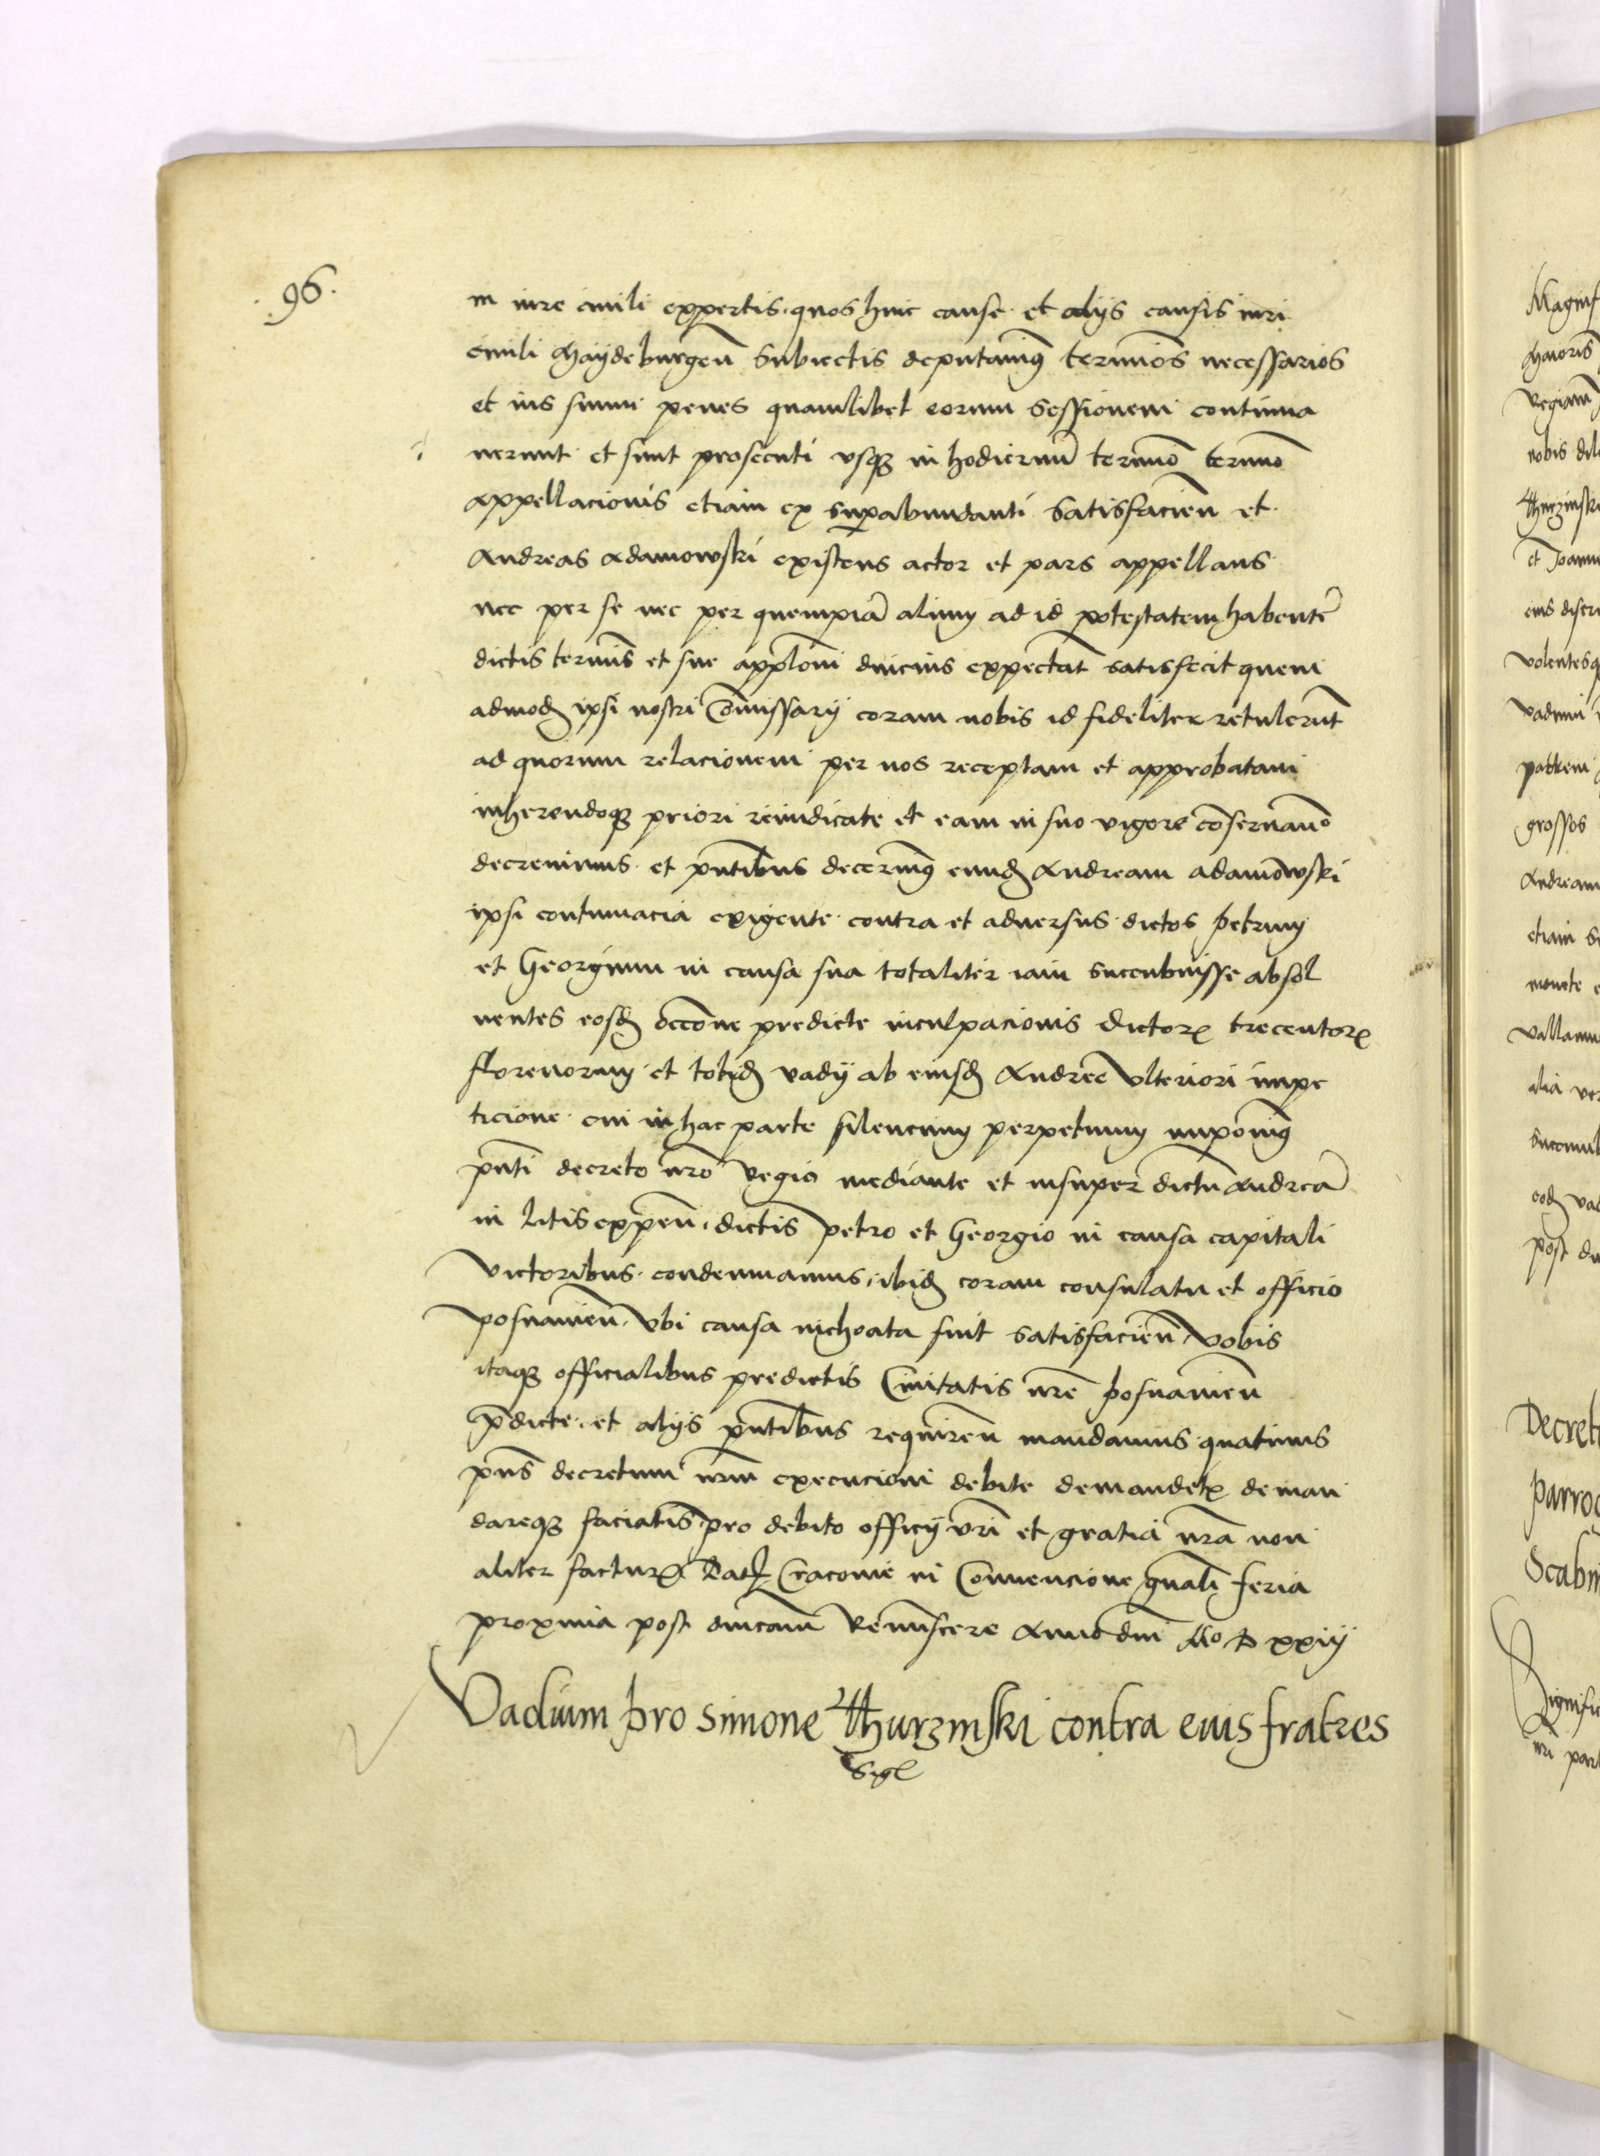 .96.
in iure ciuili expertis quos huic cause et alijs causis iuri
ciuili Maydeburgeñ subiectis deputauimꝯ terminos necessarios
et ius suum penes quamlibet eorum sessionem continua
uerunt et sunt prosecuti vsqꝫ in hodiernū terminō terminō
appellacionis etiam ex suꝑabundanti satisfacieñ et
Andreas Adamowski existens actor et pars appellans
nec per se nec per quempiā alium ad id potestatem habentē
dictis terminis et sue applōni diucius expectat̄ satisfecit quem
admodꝫ ipsi nostri Cōmissarij coram nobis id fideliter retulerūt
ad quorum relacionem per nos receptam et approbatam
inherendoqꝫ priori reiudicate et eam in suo vigore cōseruanō
decreuimus et pn̄tibus decernimꝯ eundꝫ Andream adamowski
ipsi contumacia exigente contra et aduersus dictos petrum
et Georgium in causa sua totaliter iam succubuisse absol
uentes eosdꝫ occōne predicte inculpacionis dictorꝝ trecentorꝝ
florenorum et totidꝫ vadij ab eiusdꝫ Andree vlteriori impe
ticione cui in hac parte silencium perpetuum imponimꝯ
pn̄ti decreto nr̄o regio mediante et insuper dictū Andreā
in litis expeñ dictis petro et Georgio in causa capitali
victoribus condemnamus ibidꝫ coram consulatu et officio
posnanieñ vbi causa inchoata fuit satisfacieñ vobis
itaqꝫ officialibus predictis Ciuitatis nr̄e posnanieñ
p̄dicte et alijs pn̄tibus requireñ mandamus quatinus
pn̄s decretum nr̄m execucioni debite demandetꝭ deman
dareqꝫ faciatis pro debito officij vr̄i et gratia nr̄a non
aliter facturꝭ Datꝭ Cracouie in Conuencione gn̄ali feria
proxima post dn̄icam Reminiscere Anno dn̄i Mo D xxiij
Vadium pro Simone Thurzinski contra eius fratres
Sigl